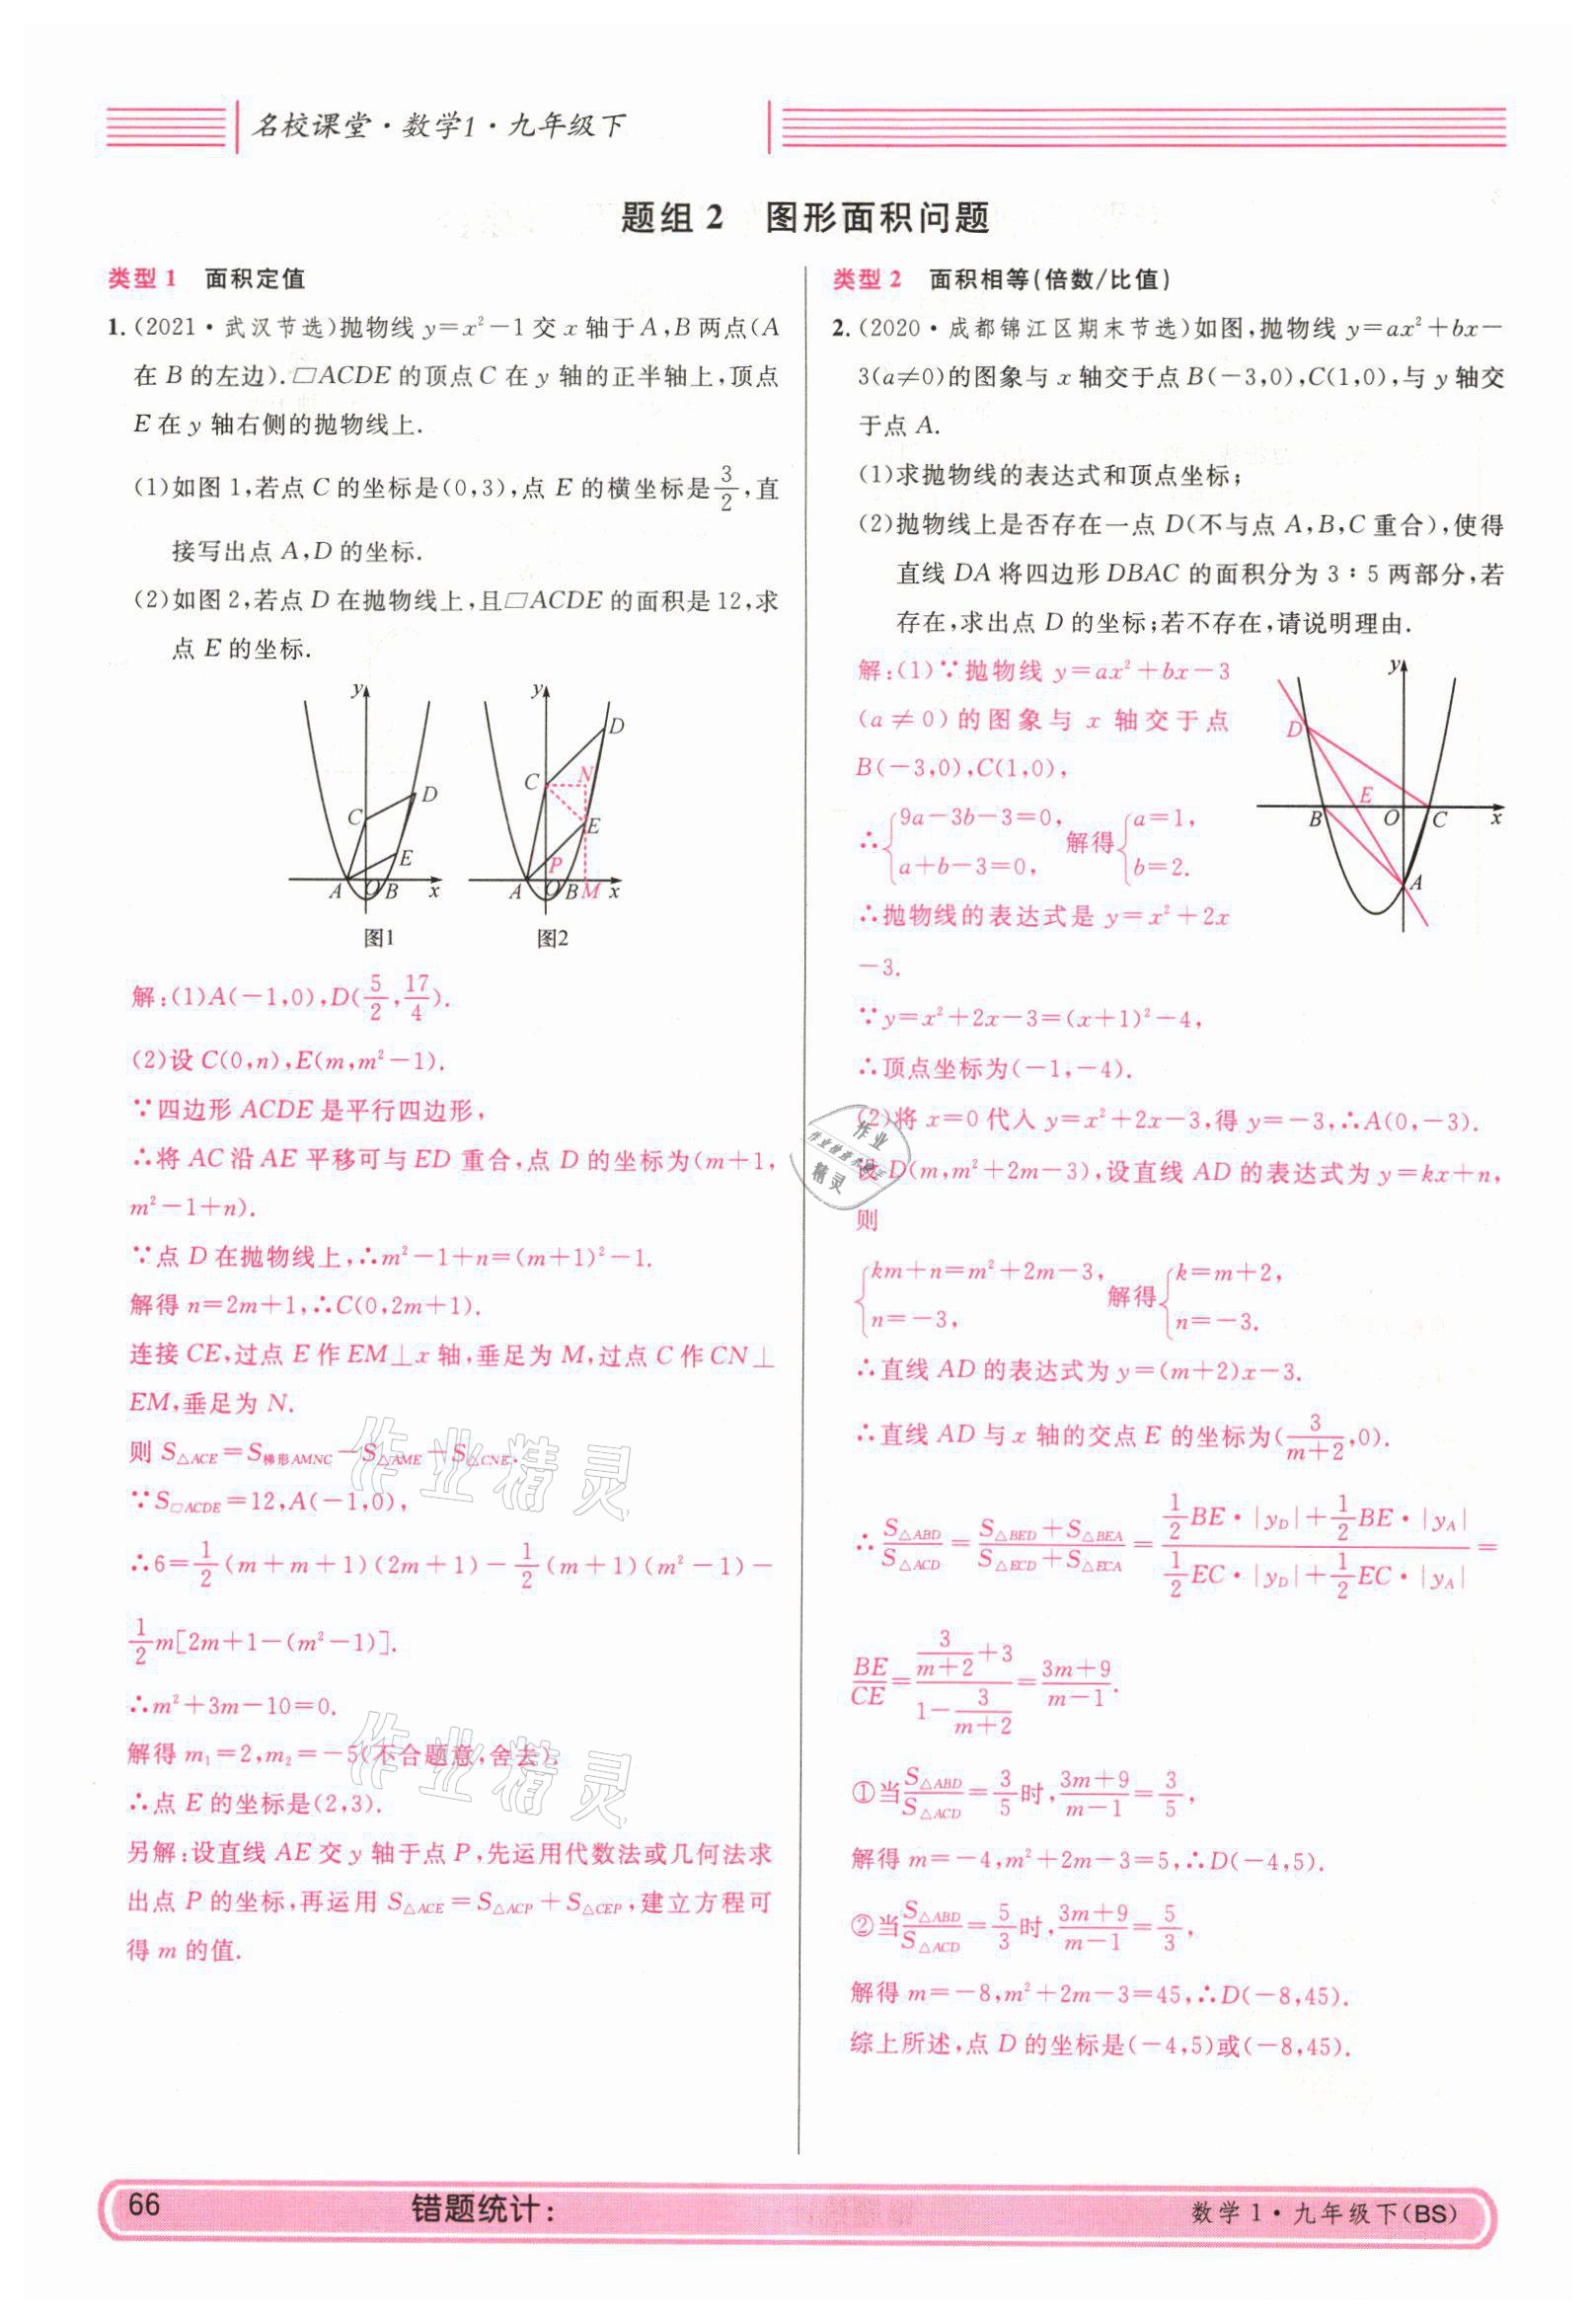 名校课堂·数学1·九年级下
题组2 图形面积问题
类型1 面积定值
1.(2021·武汉节选)抛物线 y=x²-1 交 x 轴于 A,B 两点(A
在 B 的左边).▱ACDE 的顶点 C 在 y 轴的正半轴上,顶点
E 在 y 轴右侧的抛物线上.
(1)如图1,若点 C 的坐标是(0,3),点 E 的横坐标是3/2,直
接写出点 A,D 的坐标.
(2)如图2,若点 D 在抛物线上,且▱ACDE 的面积是12,求
点 E 的坐标.
y C D E A O B x
图1
y C N D E P A O B M x
图2
解:(1)A(-1,0),D(5/2,17/4).
(2)设 C(0,n),E(m,m²-1).
∵四边形 ACDE 是平行四边形,
∴将 AC 沿 AE 平移可与 ED 重合,点 D 的坐标为(m+1,
m²-1+n).
∵点 D 在抛物线上,∴m²-1+n=(m+1)²-1.
解得 n=2m+1,∴C(0,2m+1).
连接 CE,过点 E 作 EM⊥x 轴,垂足为 M,过点 C 作 CN⊥
EM,垂足为 N.
则 S△ACE=S梯形AMNC-S△AME-S△CNE.
∵S▱ACDE=12,A(-1,0),
∴6=1/2(m+m+1)(2m+1)-1/2(m+1)(m²-1)-
1/2m[2m+1-(m²-1)].
∴m²+3m-10=0.
解得 m₁=2,m₂=-5(不合题意,舍去).
∴点 E 的坐标是(2,3).
另解:设直线 AE 交 y 轴于点 P,先运用代数法或几何法求
出点 P 的坐标,再运用 S△ACE=S△ACP+S△CEP,建立方程可
得 m 的值.
类型2 面积相等(倍数/比值)
2.(2020·成都锦江区期末节选)如图,抛物线 y=ax²+bx-
3(a≠0)的图象与 x 轴交于点 B(-3,0),C(1,0),与 y 轴交
于点 A.
(1)求抛物线的表达式和顶点坐标;
(2)抛物线上是否存在一点 D(不与点 A,B,C 重合),使得
直线 DA 将四边形 DBAC 的面积分为 3∶5 两部分,若
存在,求出点 D 的坐标;若不存在,请说明理由.
解:(1)∵抛物线 y=ax²+bx-3
(a≠0)的图象与 x 轴交于点
B(-3,0),C(1,0),
∴{9a-3b-3=0, a+b-3=0, 解得{a=1, b=2.
∴抛物线的表达式是 y=x²+2x
-3.
y D E B O C x A
∵y=x²+2x-3=(x+1)²-4,
∴顶点坐标为(-1,-4).
(2)将 x=0 代入 y=x²+2x-3,得 y=-3,∴A(0,-3).
设 D(m,m²+2m-3),设直线 AD 的表达式为 y=kx+n,
则
{km+n=m²+2m-3, n=-3, 解得{k=m+2, n=-3.
∴直线 AD 的表达式为 y=(m+2)x-3.
∴直线 AD 与 x 轴的交点 E 的坐标为(3/(m+2),0).
∴S△ABD/S△ACD=(S△BED+S△BEA)/(S△ECD+S△ECA)=(1/2BE·|yD|+1/2BE·|yA|)/(1/2EC·|yD|+1/2EC·|yA|)=
BE/CE=(3/(m+2)+3)/(1-3/(m+2))=(3m+9)/(m-1).
①当S△ABD/S△ACD=3/5时,(3m+9)/(m-1)=3/5,
解得 m=-4,m²+2m-3=5,∴D(-4,5).
②当S△ABD/S△ACD=5/3时,(3m+9)/(m-1)=5/3,
解得 m=-8,m²+2m-3=45,∴D(-8,45).
综上所述,点 D 的坐标是(-4,5)或(-8,45).
作业精灵
作业精灵
作业
精灵
66
错题统计:
数学1·九年级下(BS)